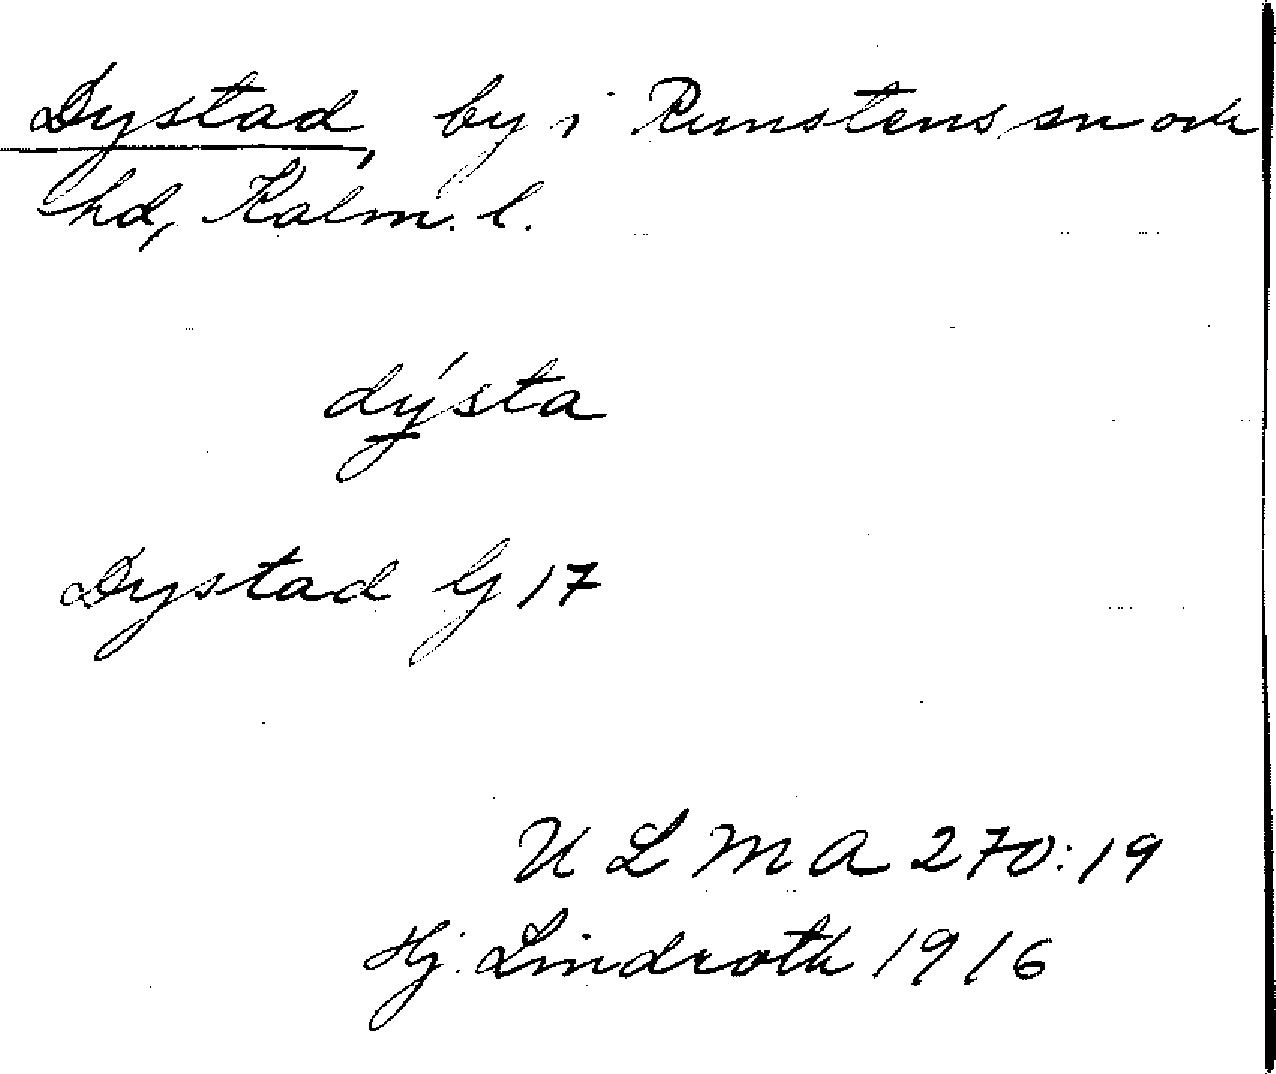 Dystad, by i Runstens sn och
hd, Kalm. l.
dýsta
Dystad G 17
ULMA 270:19
Hj. Lindroth 1916